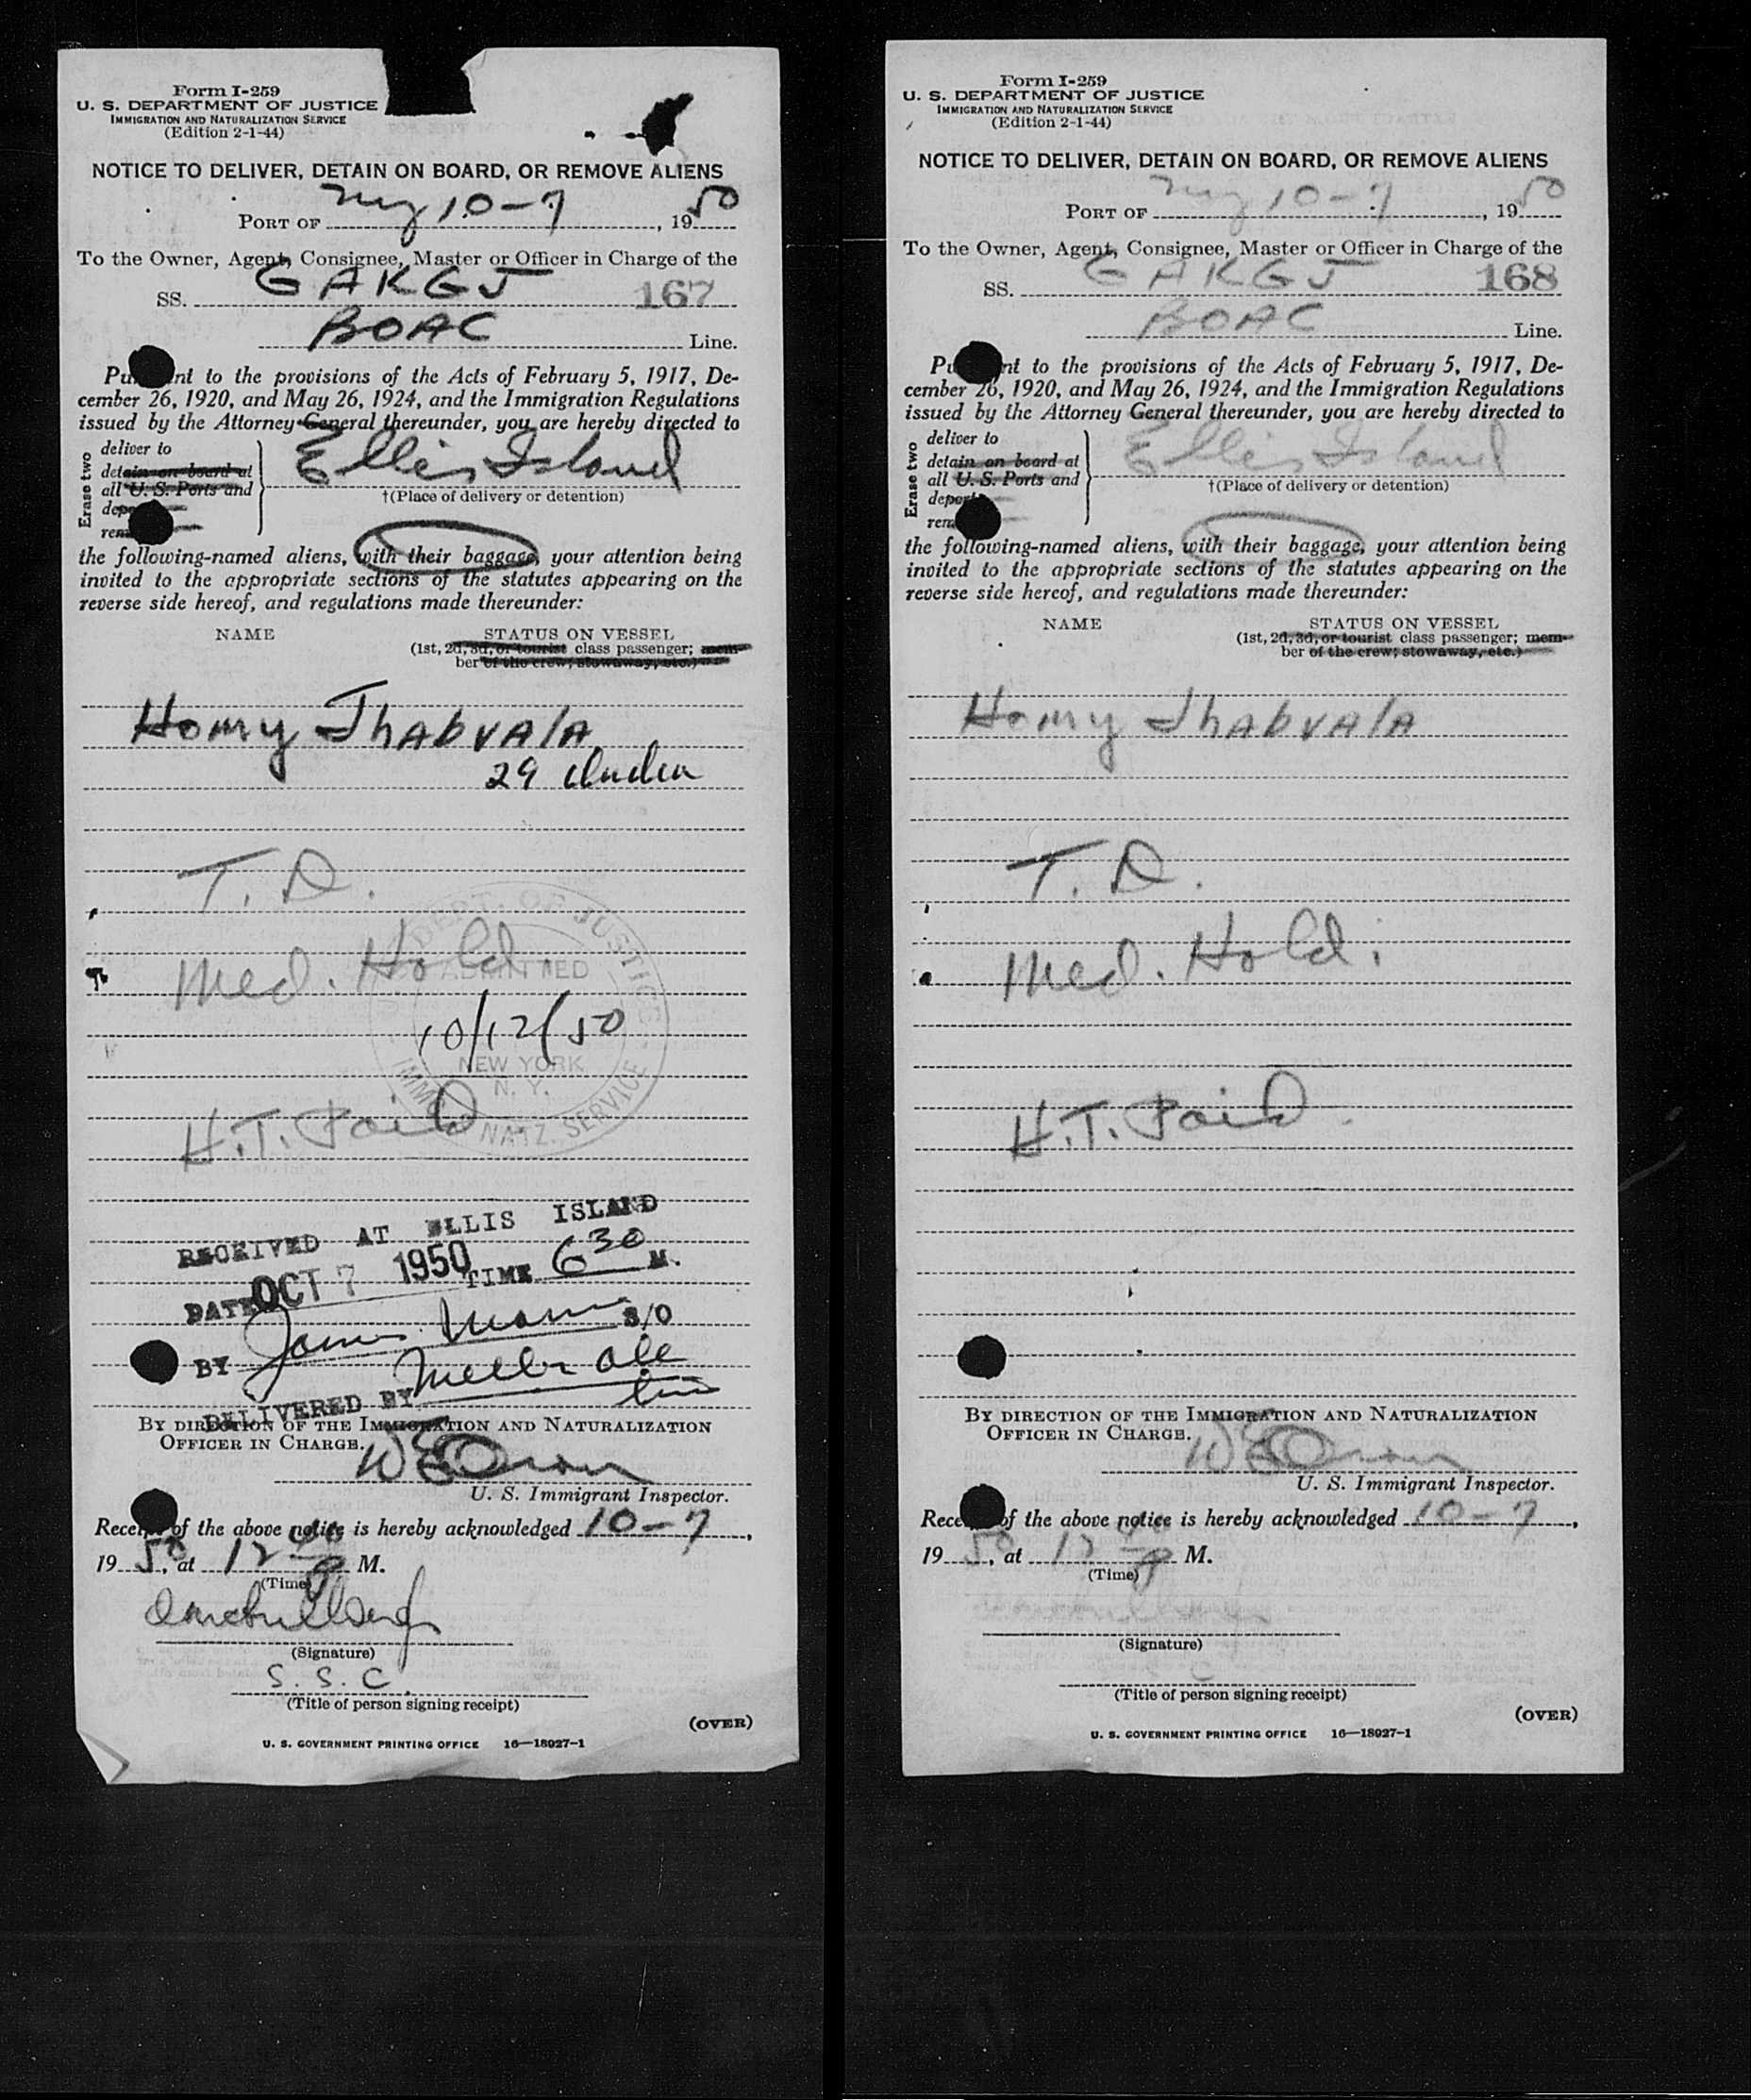 Form I-259
U. S. DEPARTMENT OF JUSTICE
IMMIGRATION AND NATURALIZATION SERVICE
(Edition 2-1-44)
NOTICE TO DELIVER, DETAIN ON BOARD, OR REMOVE ALIENS
PORT OF NY 10-7, 1950
To the Owner, Agent, Consignee, Master or Officer in Charge of the
SS. GAKGJ 167
BOAC Line.
Pu nt to the provisions of the Acts of February 5, 1917, De-
cember 26, 1920, and May 26, 1924, and the Immigration Regulations
issued by the Attorney General thereunder, you are hereby directed to
Erase two
deliver to
detain on board at
all U. S. Ports and
dep
rem
Ellis Island
†(Place of delivery or detention)
the following-named aliens, with their baggage, your attention being
invited to the appropriate sections of the statutes appearing on the
reverse side hereof, and regulations made thereunder:
NAME STATUS ON VESSEL
(1st, 2d, 3d, or tourist class passenger; mem-
ber of the crew; stowaway, etc.)
Homy Jhabvala
29 India
T. D.
DEPT. OF JUSTICE
Med. Hold.
ADMITTED
10/12/50
NEW YORK
N. Y.
IMM NATZ. SERVICE
H.T. Paid
RECEIVED AT ELLIS ISLAND
DATE OCT 7 1950 TIME 6 30 M.
BY James S/O
DELIVERED BY
BY DIRECTION OF THE IMMIGRATION AND NATURALIZATION
OFFICER IN CHARGE.
U. S. Immigrant Inspector.
Rece of the above notice is hereby acknowledged 10-7,
1950, at 12 P M.
(Time)
(Signature)
S. S. C.
(Title of person signing receipt)
(OVER)
U. S. GOVERNMENT PRINTING OFFICE 16—18027-1
Form I-259
U. S. DEPARTMENT OF JUSTICE
IMMIGRATION AND NATURALIZATION SERVICE
(Edition 2-1-44)
NOTICE TO DELIVER, DETAIN ON BOARD, OR REMOVE ALIENS
PORT OF NY 10-7, 1950
To the Owner, Agent, Consignee, Master or Officer in Charge of the
SS. GAKGJ 168
BOAC Line.
Pu nt to the provisions of the Acts of February 5, 1917, De-
cember 26, 1920, and May 26, 1924, and the Immigration Regulations
issued by the Attorney General thereunder, you are hereby directed to
Erase two
deliver to
detain on board at
all U. S. Ports and
deport
rem
Ellis Island
†(Place of delivery or detention)
the following-named aliens, with their baggage, your attention being
invited to the appropriate sections of the statutes appearing on the
reverse side hereof, and regulations made thereunder:
NAME STATUS ON VESSEL
(1st, 2d, 3d, or tourist class passenger; mem-
ber of the crew; stowaway, etc.)
Homy Jhabvala
T. D.
Med. Hold.
H.T. Paid.
BY DIRECTION OF THE IMMIGRATION AND NATURALIZATION
OFFICER IN CHARGE.
U. S. Immigrant Inspector.
Rece of the above notice is hereby acknowledged 10-7,
1950, at 12 P M.
(Time)
(Signature)
(Title of person signing receipt)
(OVER)
U. S. GOVERNMENT PRINTING OFFICE 16—18027-1